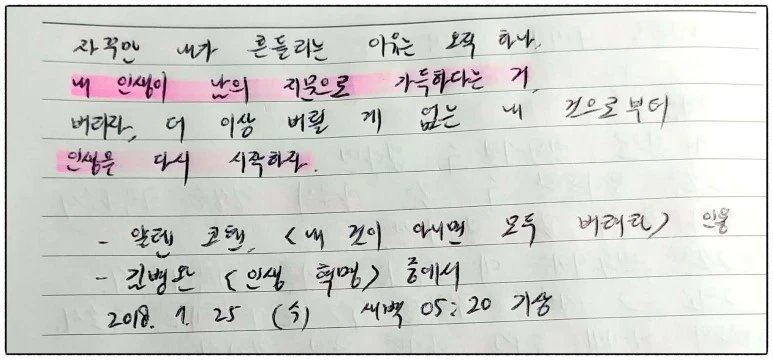 자꾸만 내가 흔들리는 이유는 오직 하나.
내 인생이 남의 지문으로 가득하다는 거.
버려라, 더 이상 버릴 게 없는 내 것으로부터
인생을 다시 시작하라.
- 알렌 코헨, <내 것이 아니면 모두 버려라> 인용
- 김병완 <인생 혁명> 중에서
2018. 7. 25 (수) 새벽 05:20 기상